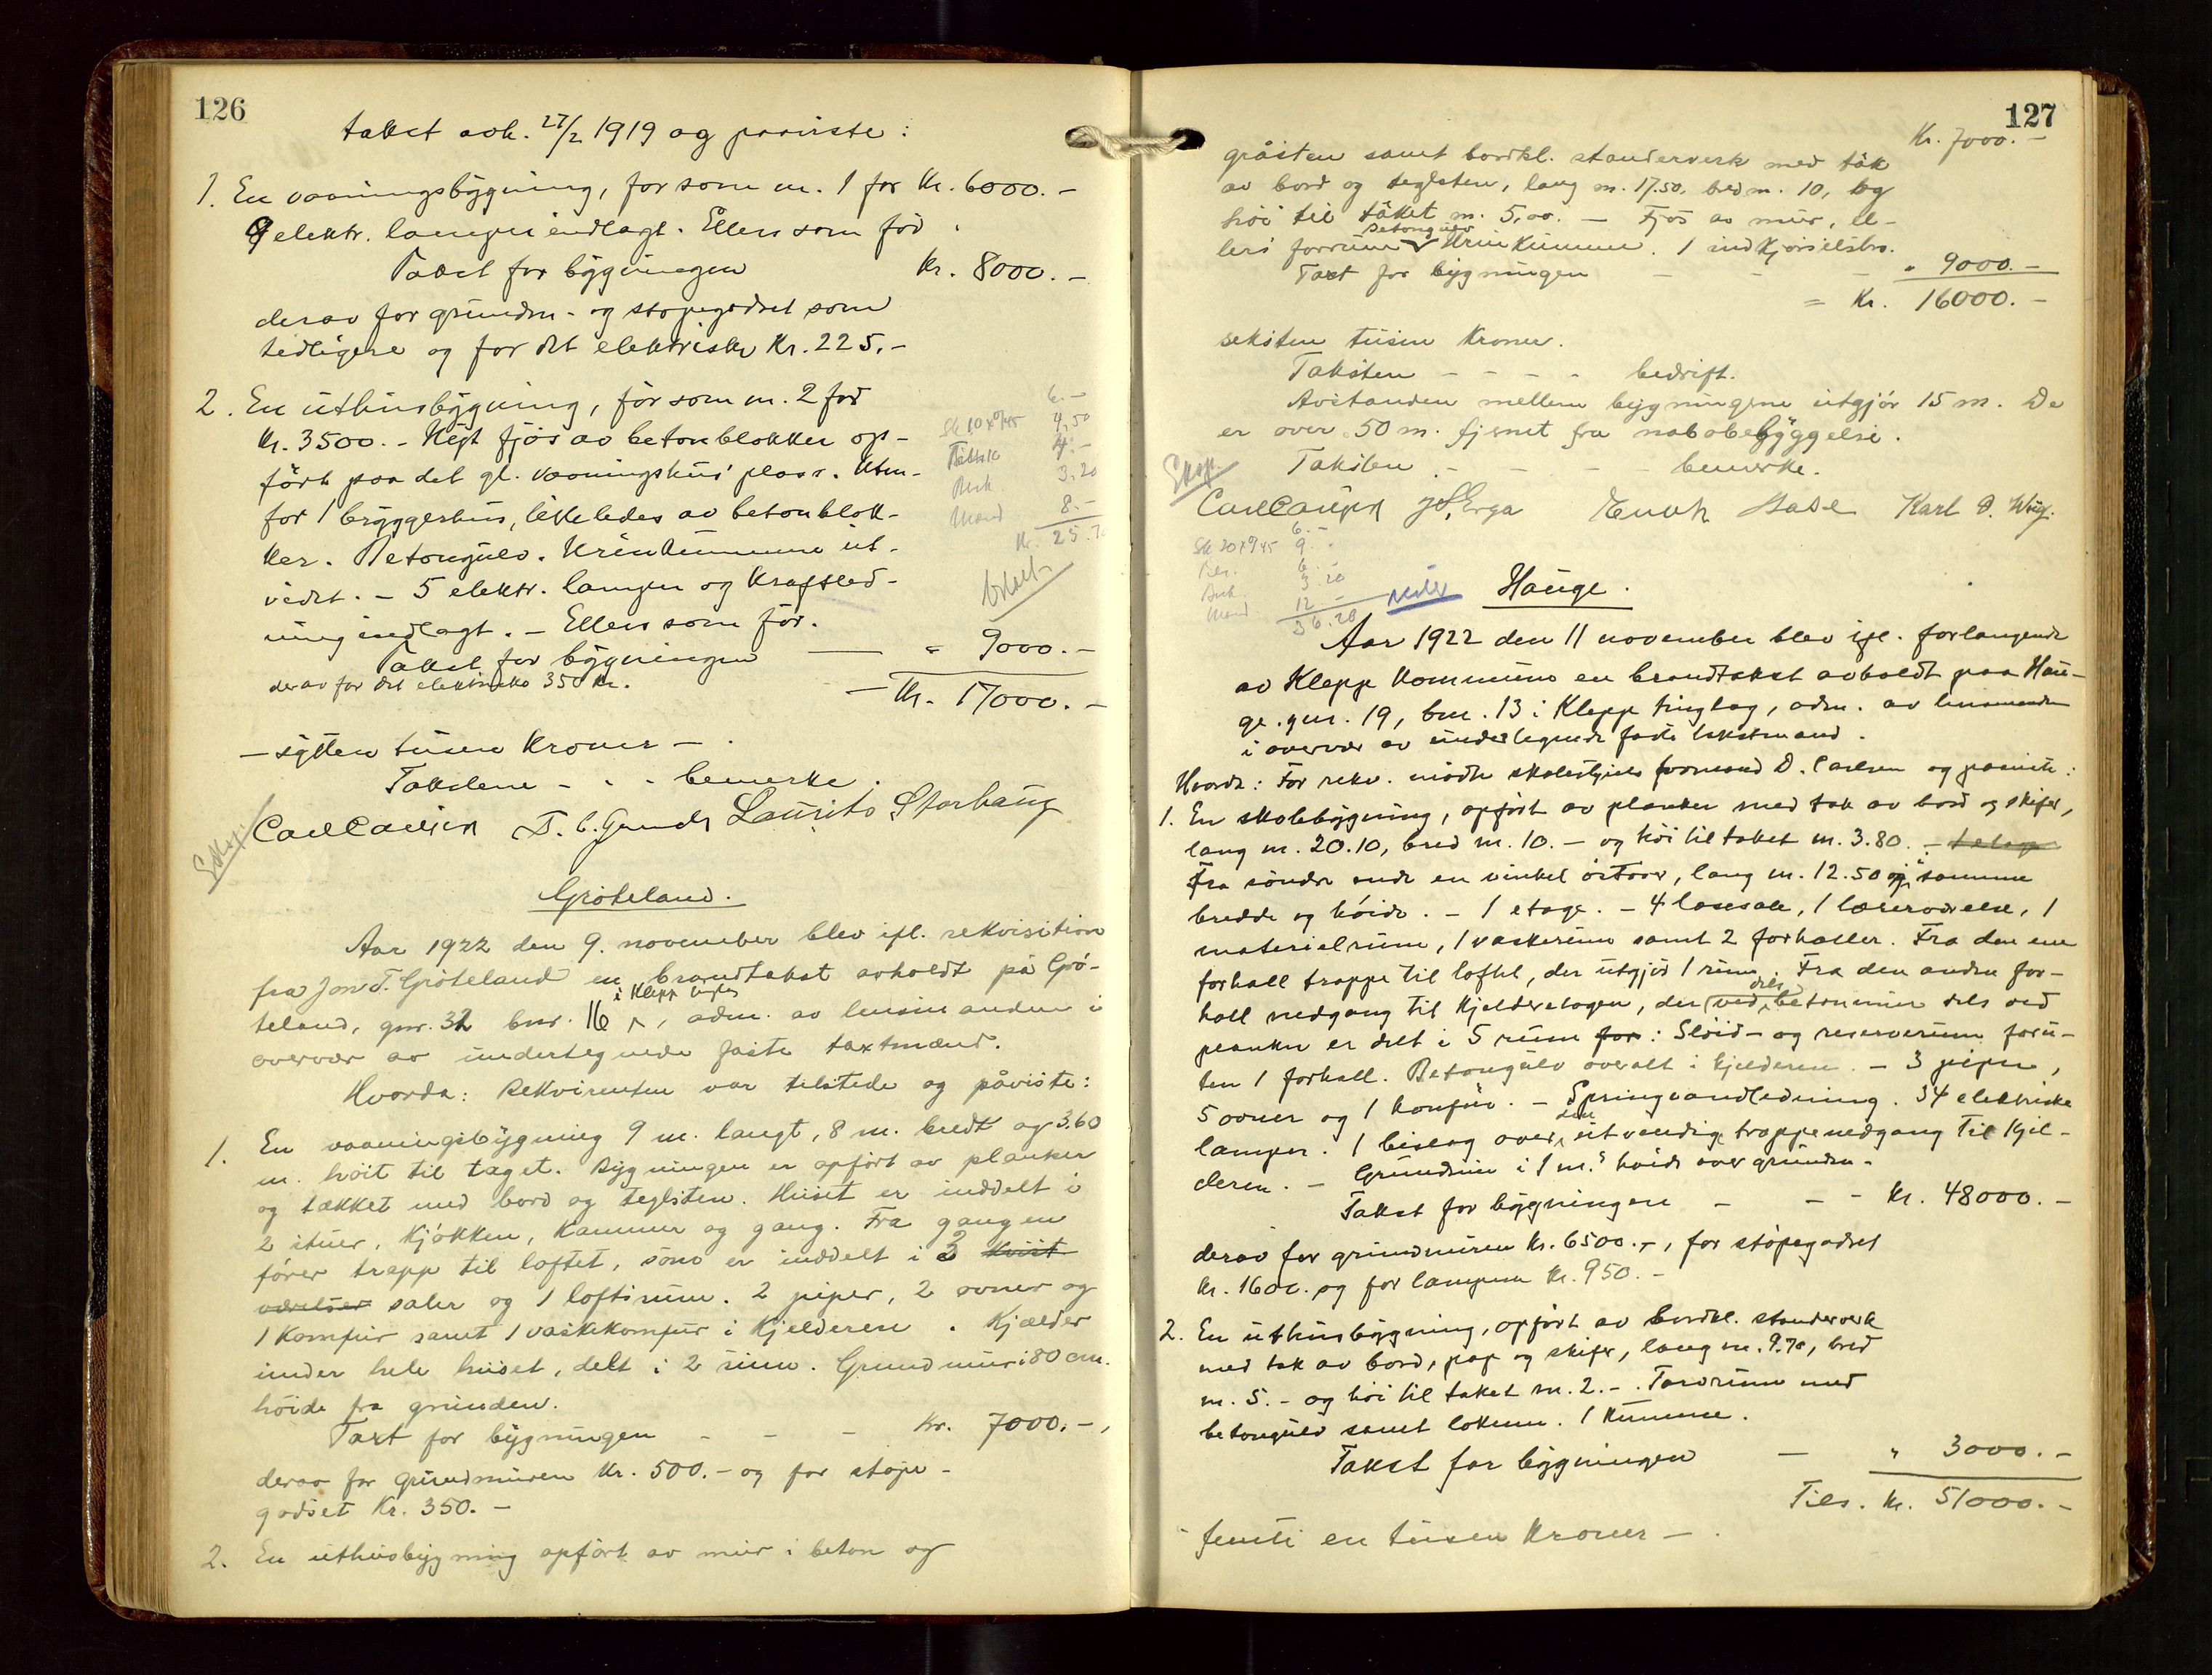 126
takst avh. 27/2 1919 og paaviste:
1. En vaaningsbygning, før som nr. 1 for Kr. 6000.-
9 elektr. lamper indlagt. Ellers som før.
Takst for bygningen Kr. 8000.-
derav for grundm- og støpegodset som
tidligere og for det elektriske Kr. 225.-
2. En uthusbygning, før som nr. 2 for
Kr. 3500.- Nyt fjøs av betonblokker op-
ført paa det gl. vaaningshus' plass. Uten-
for 1 bryggerhus, likeledes av betonblok-
ker. Betongulv. Urinkumme ut-
videt. - 5 elektr. lamper og kraftled-
ning indlagt. - Ellers som før.
Takst for bygningen — " 9000.-
derav for det elektriske 350 Kr.
— Kr. 17000.-
6.-
Sk 10 x 0/45 4,50
4.-
3.20
Mand 8.-
Kr. 25.7
- sytten tusen Kroner -.
Takstene - - - bemerke.
Carl Carlsen T. C. Grude Laurits Storhaug
Ekspl.
Grøteland.
Aar 1922 den 9. november blev ifl. rekvisition
fra Jon T. Grøteland en brandtakst avholdt på Grø-
i Klepp tingl.
teland, gnr. 32 bnr. 16, adm. av lensmanden i
overvær av undertegnede faste taxtmænd.
Hvorda: Rekvirenten var tilstede og påviste:
1. En vaaningsbygning 9 m. langt, 8 m. bredt og 3.60
m. høit til taget. Bygningen er opført av planker
og tækket med bord og teglsten. Huset er inddelt i
2 stuer, kjøkken, kammer og gang. Fra gangen
fører trapp til loftet, som er inddelt i 3 kvist
værelser saler og 1 loftsrum. 2 piper, 2 ovner og
1 komfur samt 1 vaskekomfur i kjelderen. Kjælder
under hele huset, delt i 2 rum. Grundmur i 80 cm.
høide fra grunden.
Taxt for bygningen - - - Kr. 7000.-,
derav for grundmuren Kr. 500.- og for støpe-
godset Kr. 350.-
2. En uthusbygning opført av mur i beton og
127
Kr. 7000.-
gråsten samt bordkl. standerverk med tak
av bord og teglsten, lang m. 17.50, bred m. 10, og
høi til taket m. 5,00. - Fjøs av mur, el-
betongulv
lers forrum Urinkumme. 1 indkjørselsbro.
Taxt for bygningen - - - " 9000.-
= Kr. 16000.-
seksten tusen Kroner.
Taksten - - - - bedrift.
Avstanden mellem bygningene utgjør 15 m. De
er over 50 m. fjernet fra nabobebyggelse.
Taksten - - - - bemerke.
Ekspl.
Carl Carlsen J. S. Erga Enok Hase Karl O. Wiig.
6.-
Sk 20 x 0/45 9.-
6.-
3.20
Mand 12.-
36.20
Hauge.
Aar 1922 den 11 november blev ifl. forlangende
av Klepp Kommune en brandtakst avholdt paa Hau-
ge, gnr. 19, bnr. 13 i Klepp tinglag, adm. av lensmanden
i overvær av undertegnede faste takstmænd.
Hvorda: For rekv. mødte skolestyrets formand D. Carlsen og paaviste:
1. En skolebygning, opført av planker med tak av bord og skifer,
lang m. 20.10, bred m. 10.- og høi til taket m. 3.80. - 1 etage
Fra søndre ende en vinkel østover, lang m. 12.50 og samme
bredde og høide. - 1 etage. - 4 læsesale, 1 lærerværelse, 1
materialrum, 1 vaskerum samt 2 forhaller. Fra den ene
forhall trappe til loftet, der utgjør 1 rum. Fra den andre for-
dels
hall nedgang til kjelderetagen, der ved betonmur dels ved
planker er delt i 5 rum for: Sløid- og reserverum foru-
ten 1 forhall. Betongulv overalt i kjelderen. - 3 piper,
5 ovner og 1 komfur. - Springvandledning. 34 elektriske
den
lamper. 1 bislag over utvendige trappenedgang til kjel-
deren. - Grundmur i 1 m.s høide over grunden.
Takst for bygningen - - - Kr. 48000.-
derav for grundmuren Kr. 6500.-, for støpegodset
Kr. 1600. og for lampene Kr. 950.-
2. En uthusbygning, opført av bordkl. standerverk
med tak av bord, pap og skifer, lang m. 9.70, bred
m. 5.- og høi til taket m. 2.-. Torvrum med
betongulv samt lokum. 1 Kumme.
Takst for bygningen — " 3000.-
Tils. Kr. 51000.-
- femti en tusen Kroner -.